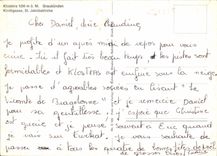 Klosters 1206 m ü. M. Graubünden
Kirchgasse, St. Jakobskirche
Cher Daniel, chère Claudine,
Je profite d'un après midi de repos pour vous
écrire. Ici il fait très beau temps et les pistes sont
formidables et Klosters est enfoui sous la neige.
Je passe d'agréables soirées en lisant "Le
vicomte de Bragelonne" et je remercie Daniel
pour sa gentillesse, j'espère que Claudine
est guérie et je pense souvent à Eric quand
je vais sur. Je vous souhaite de
passer à tous les quatre de